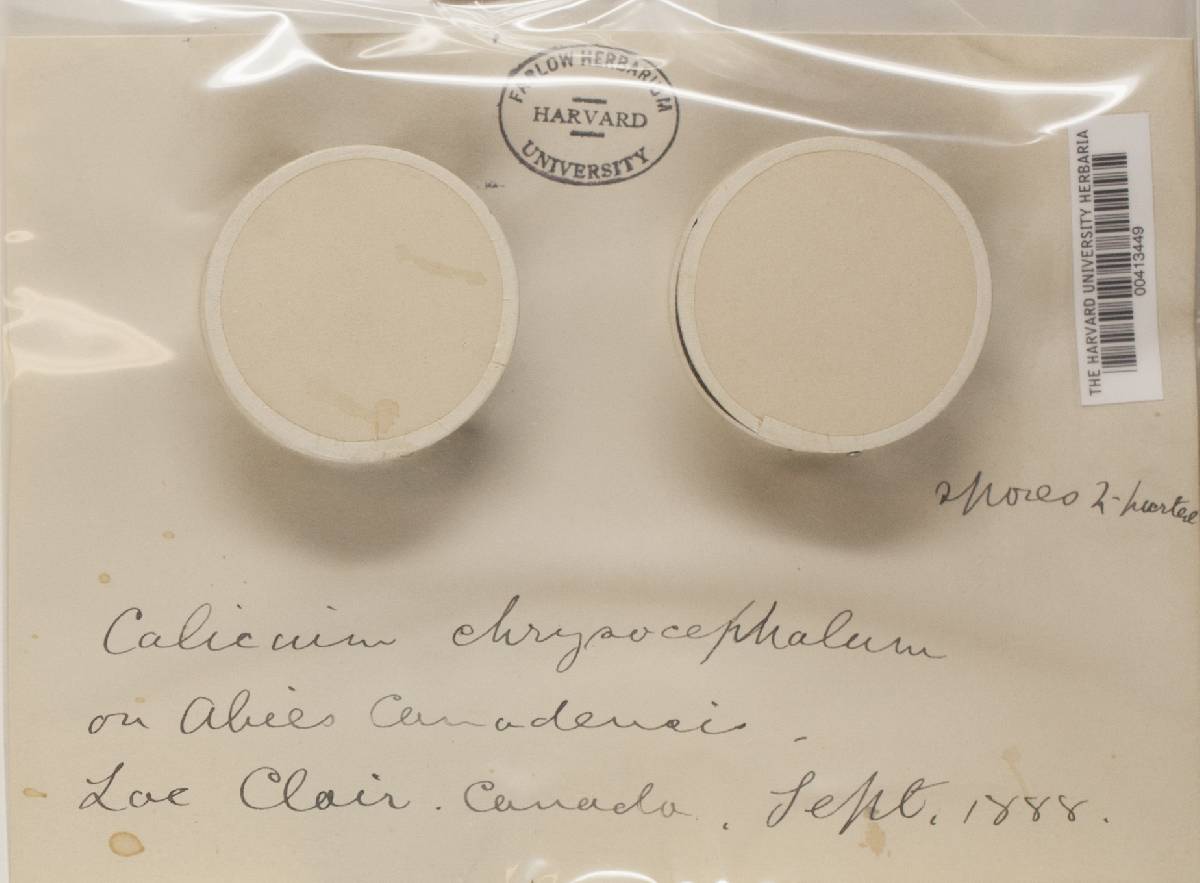 FARLOW HERBARIUM
HARVARD
UNIVERSITY
THE HARVARD UNIVERSITY HERBARIA
00413449
spores 2-parted
Calicium chrysocephalum
on Abies Canadensis.
Lac Clair. Canada. Sept. 1888.